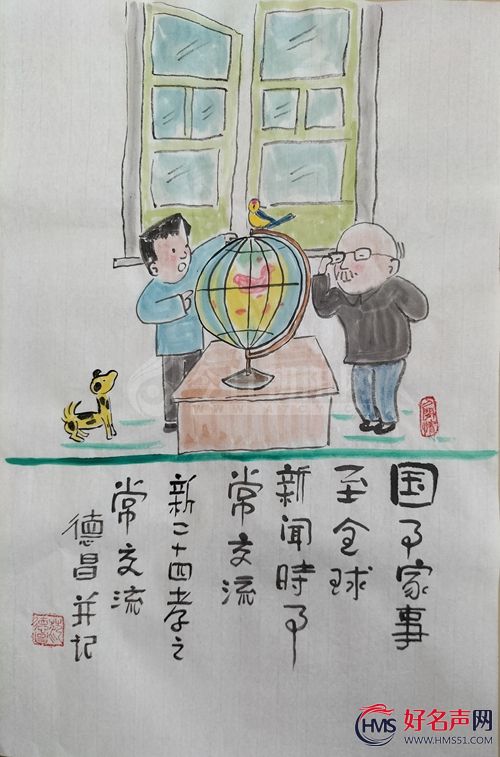 国事家事
至全球
新闻時事
常交流
新二十四孝之
常交流
德昌并记
HMS 好名声网
WWW.HMS51.COM